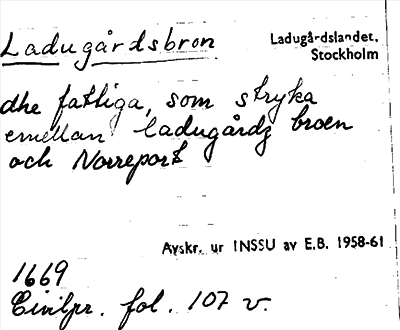 Ladugårdsbron
Ladugårdslandet,
Stockholm
dhe fattiga, som stryka
emellan ladugårdz broen
och Norreport
Avskr. ur INSSU av E.B. 1958-61
1669
Civilpr. fol. 107 v.